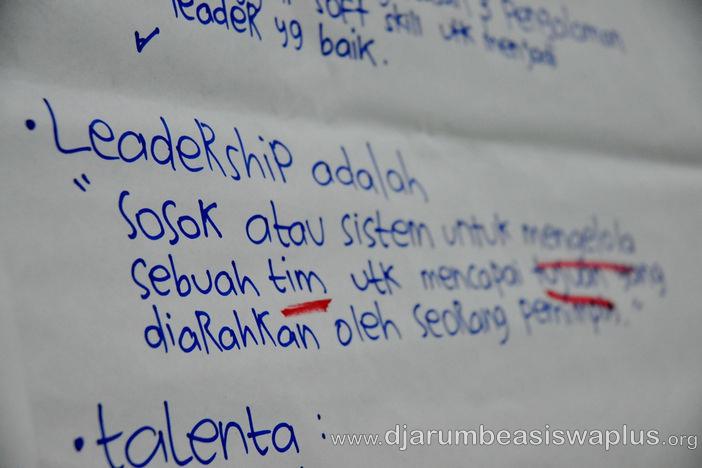 soft skill utk menjadi
leader yg baik.
• Leadership adalah
" sosok atau sistem untuk mengelola
sebuah tim utk mencapai tujuan yang
diarahkan oleh seorang pemimpin."
• talenta :
www.djarumbeasiswaplus.org